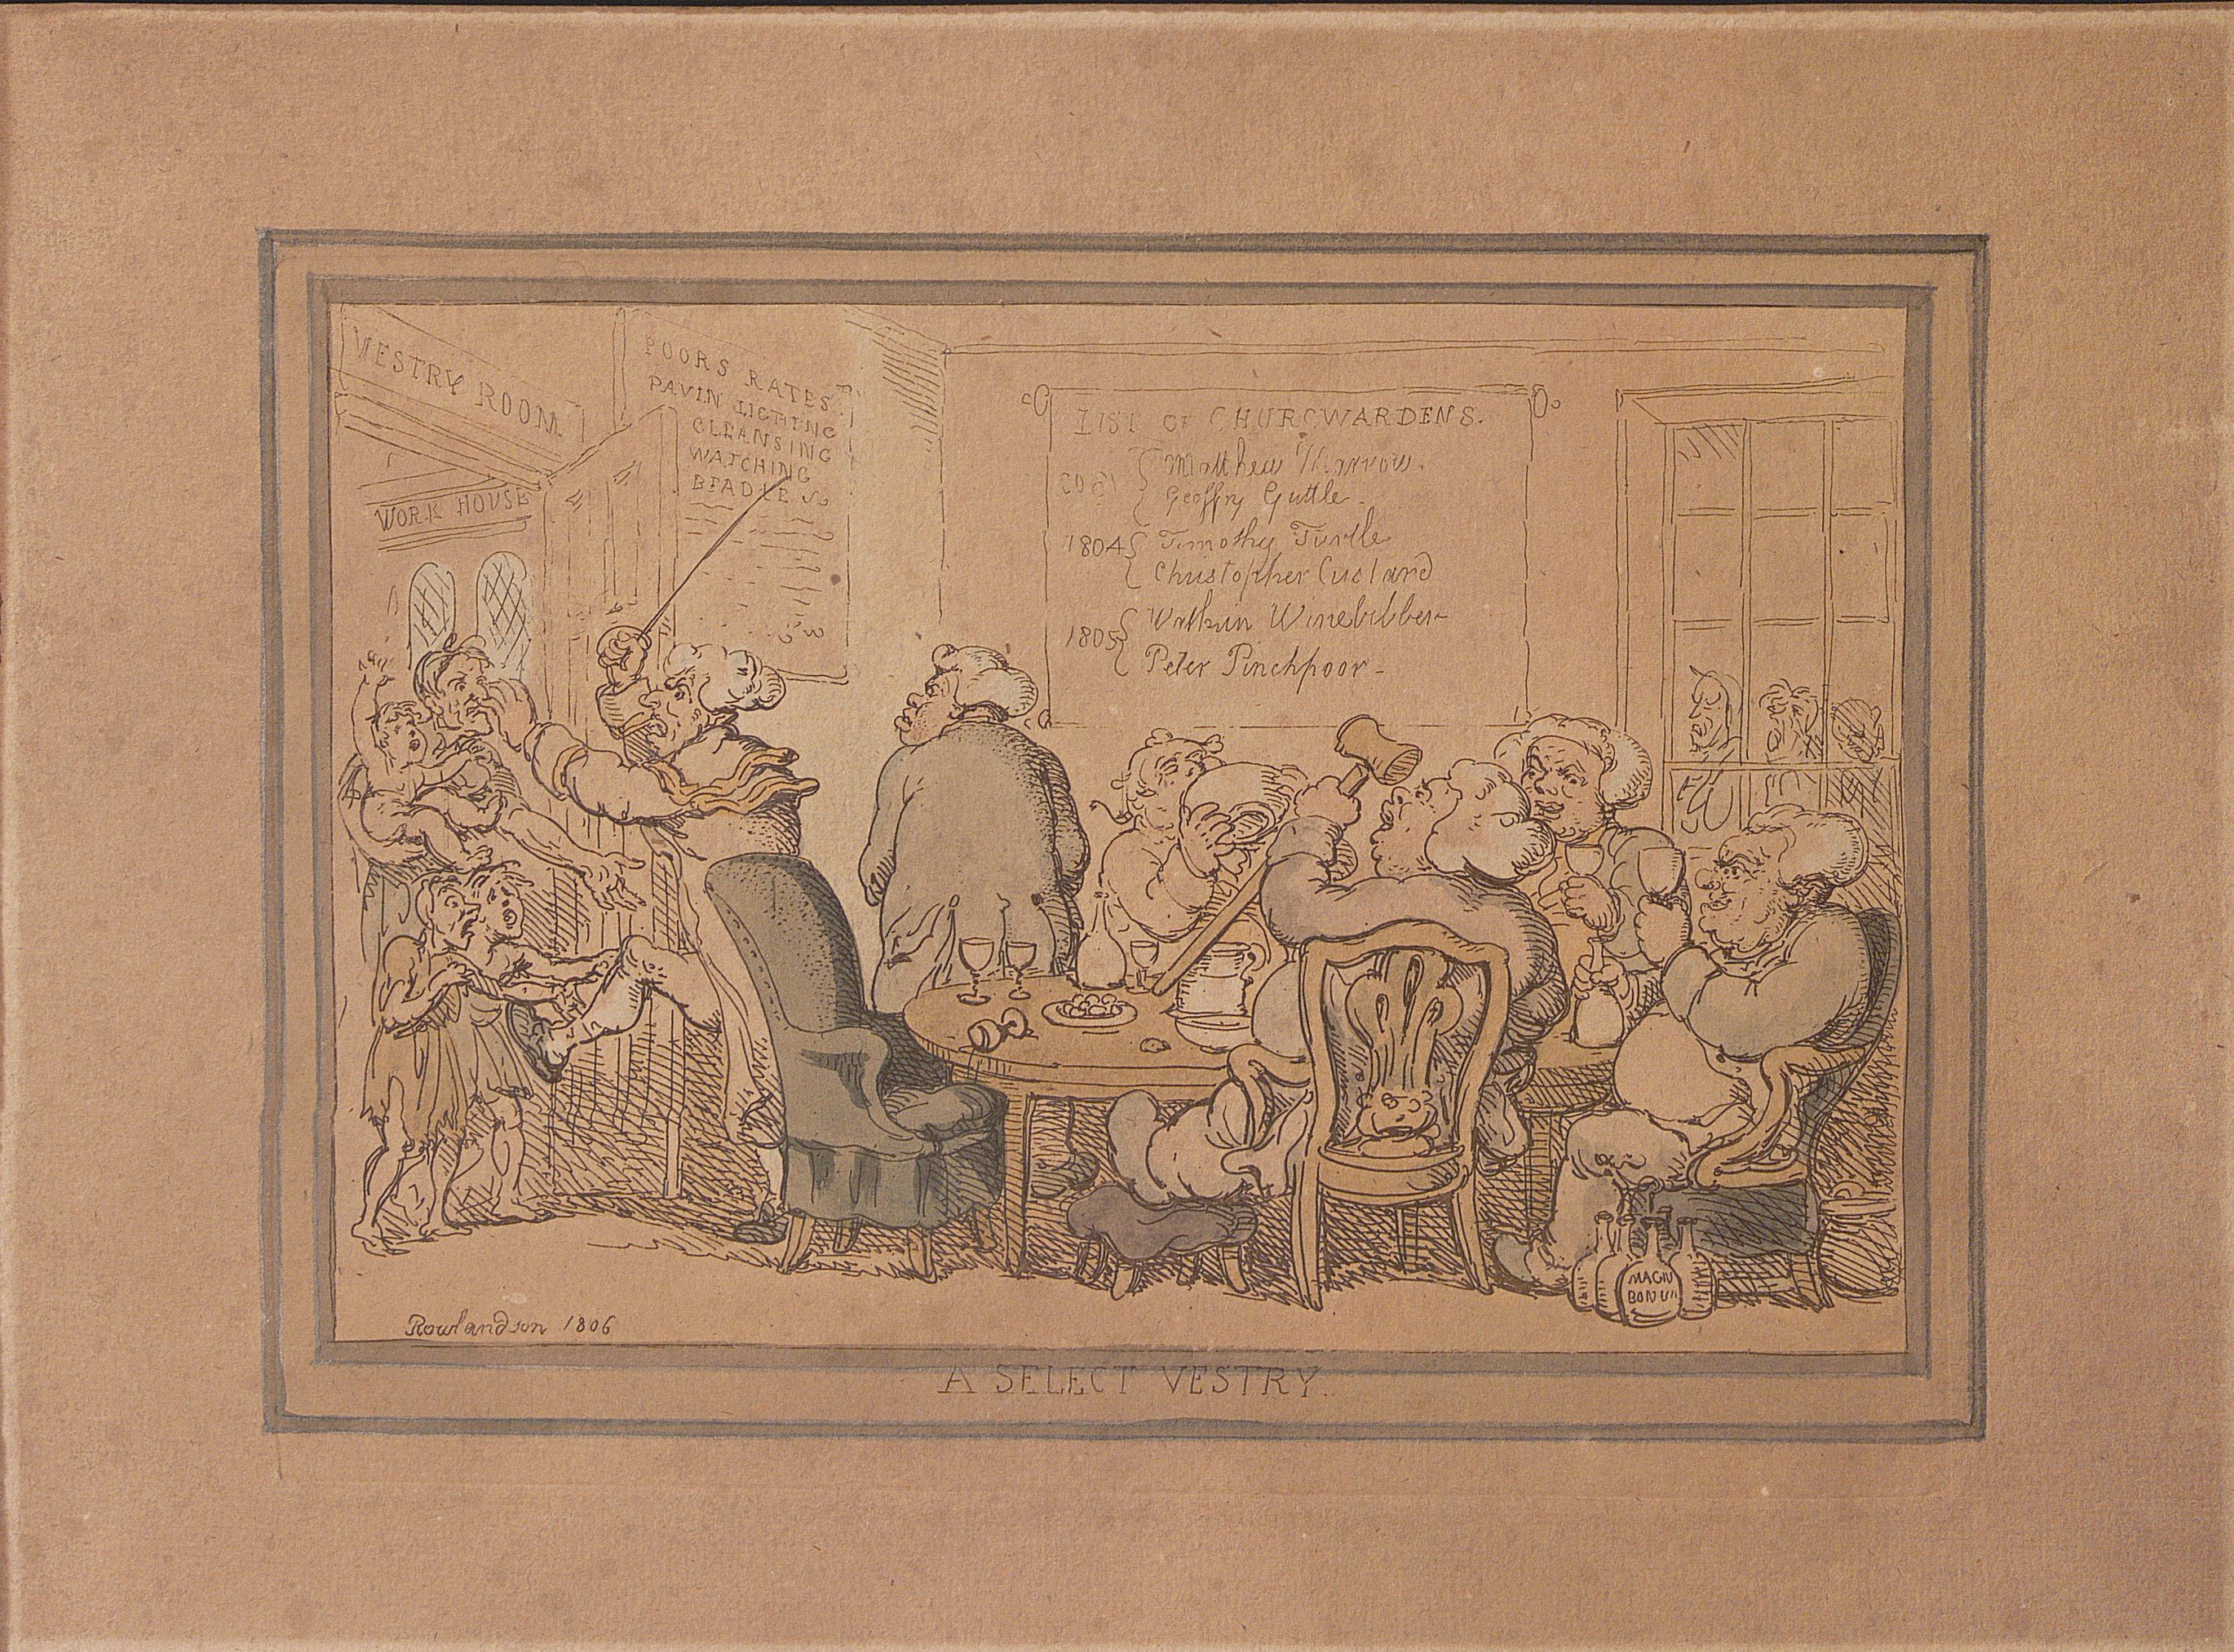 VESTRY ROOM
WORK HOUSE
POORS RATES
PAVIN LIGHTING
CLEANSING
WATCHING
BEADLES
LIST OF CHURCWARDENS.
Matthew Marrow.
Geoffry Guttle.
1804 { Timothy Turtle
Christopher Custard
1805 { Watkin Winebibber
Peter Pinchpoor -
MAGN
BONUM
Rowlandson 1806
A SELECT VESTRY.